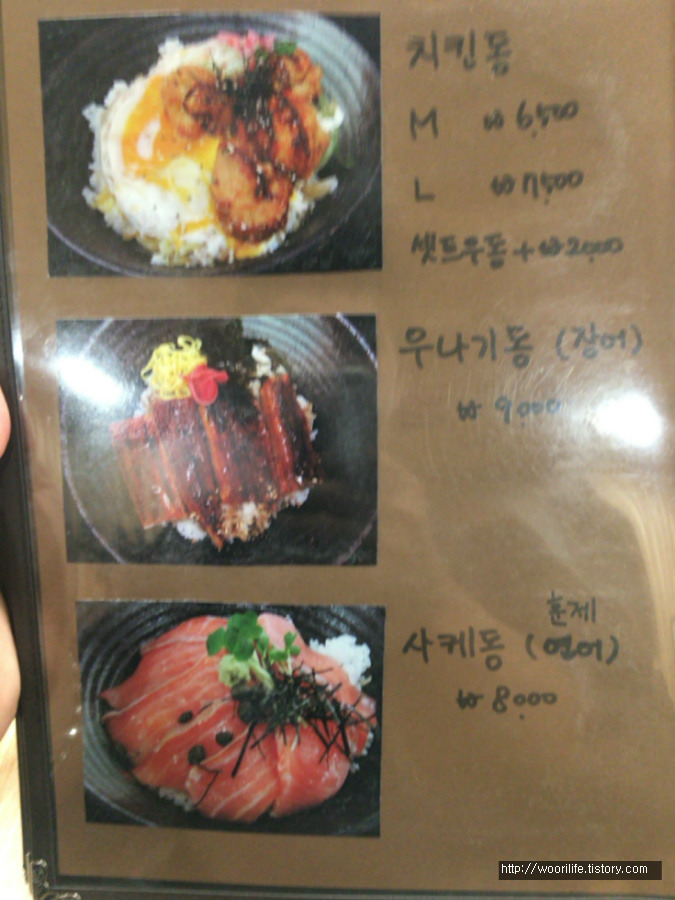 치킨동
M ₩ 6,500
L ₩ 7,500
셋트우동 + ₩ 2,000
우나기동 (장어)
₩ 9,000
훈제
사케동 (연어)
₩ 8,000
http://woorilife.tistory.com